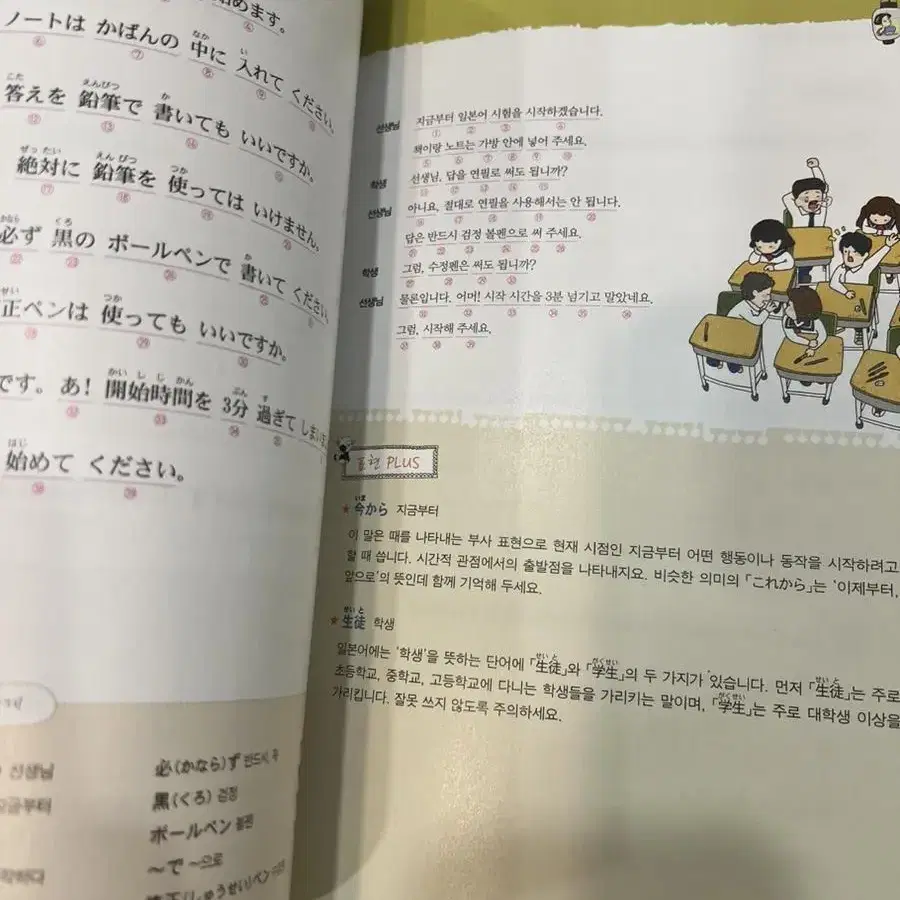 めます。
ノートは かばんの 中に 入れて ください。
答えを 鉛筆で 書いても いいですか。
絶対に 鉛筆を 使っては いけません。
必ず 黒の ボールペンで 書いて ください。
正ペンは 使っても いいですか。
です。 あ! 開始時間を 3分 過ぎて しまいま
始めて ください。
선생님
必(かなら)ず 반드시, 꼭
지금부터
黒(くろ) 검정
ボールペン 볼펜
~で ~으로
선생님 지금부터 일본어 시험을 시작하겠습니다.
책이랑 노트는 가방 안에 넣어 주세요.
학생 선생님, 답을 연필로 써도 됩니까?
선생님 아니요, 절대로 연필을 사용해서는 안 됩니다.
답은 반드시 검정 볼펜으로 써 주세요.
학생 그럼, 수정펜은 써도 됩니까?
선생님 물론입니다. 어머! 시작 시간을 3분 넘기고 말았네요.
그럼, 시작해 주세요.
표현 PLUS
★ 今から 지금부터
이 말은 때를 나타내는 부사 표현으로 현재 시점인 지금부터 어떤 행동이나 동작을 시작하려고
할 때 씁니다. 시간적 관점에서의 출발점을 나타내지요. 비슷한 의미의 「これから」는 '이제부터,
앞으로'의 뜻인데 함께 기억해 두세요.
★ 生徒 학생
일본어에는 '학생'을 뜻하는 단어에 「生徒」와 「学生」의 두 가지가 있습니다. 먼저 「生徒」는 주로
초등학교, 중학교, 고등학교에 다니는 학생들을 가리키는 말이며, 「学生」는 주로 대학생 이상을
가리킵니다. 잘못 쓰지 않도록 주의하세요.